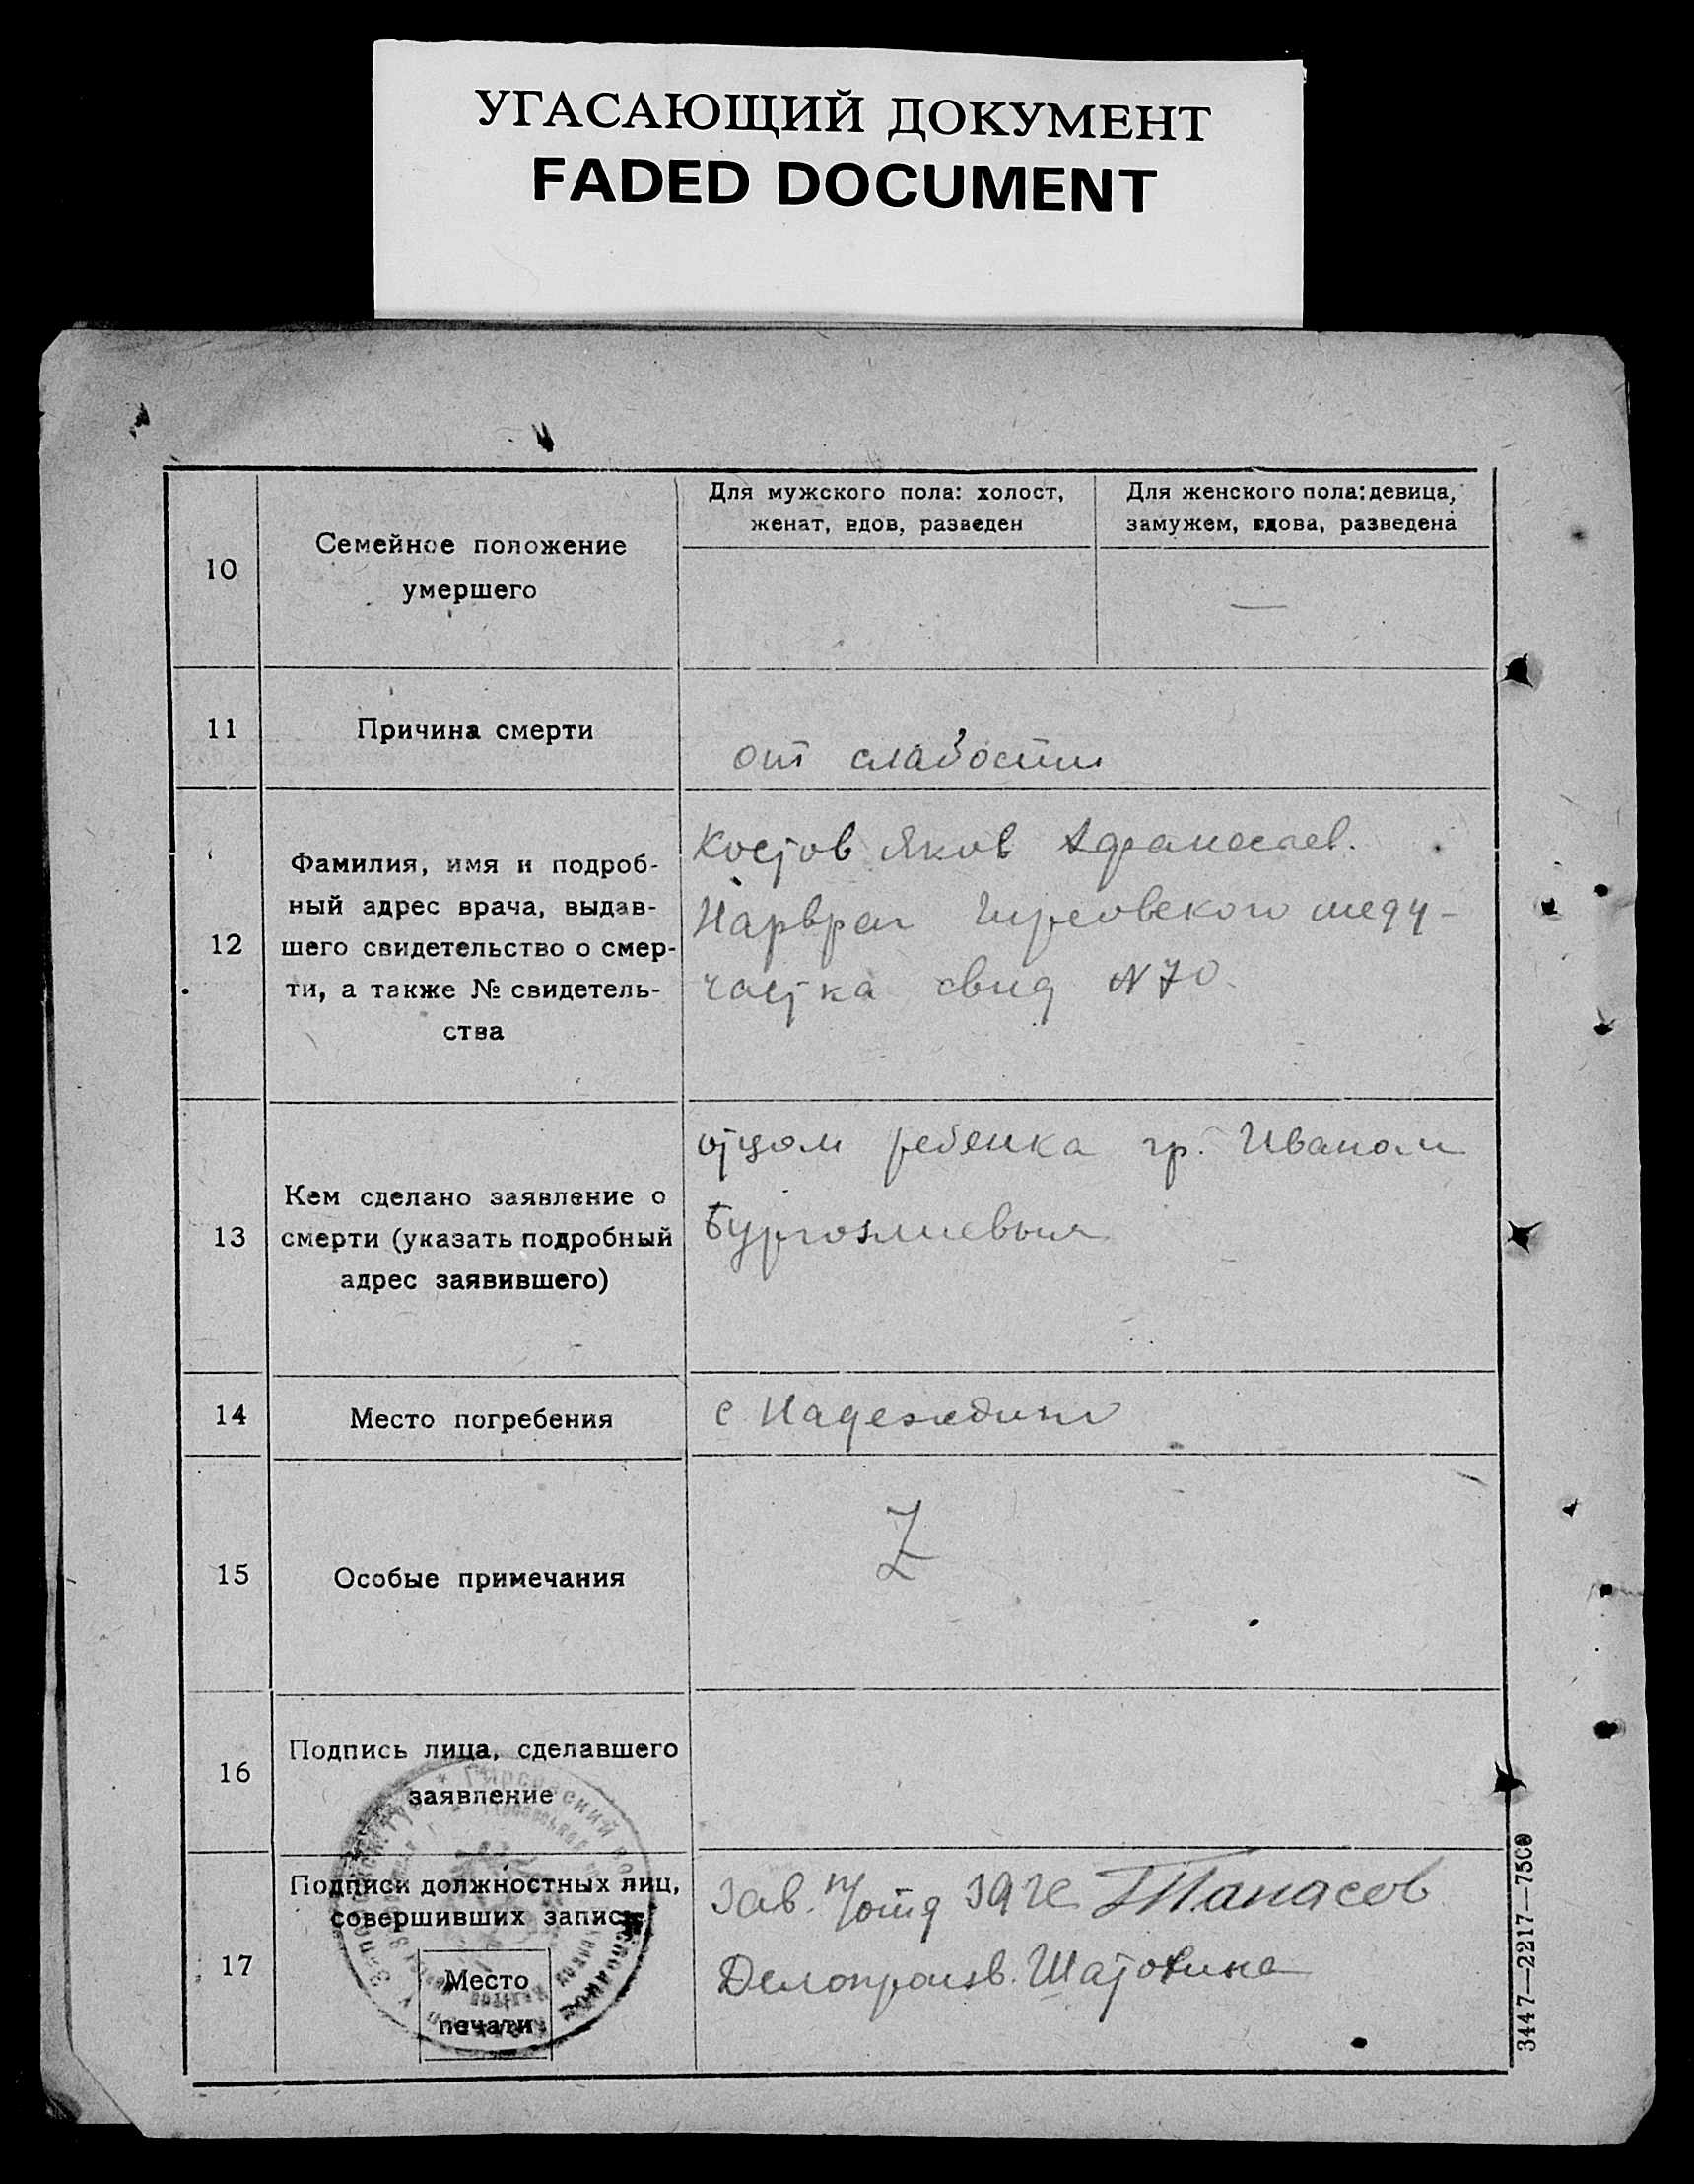 УГАСАЮЩИЙ ДОКУМЕНТ
FADED DOCUMENT
10
Семейное положение
умершего
Для мужского пола: холост,
женат, вдов, разведен
Для женского пола: девица,
замужем, вдова, разведена
—
11
Причина смерти
от слабости
12
Фамилия, имя и подроб-
ный адрес врача, выдав-
шего свидетельство о смер-
ти, а также № свидетель-
ства
Яков
меду-
частка свид N 70
13
Кем сделано заявление о
смерти (указать подробный
адрес заявившего)
отцом ребенка гр. Иваном
14
Место погребения
с Надеждино
15
Особые примечания
Z
16
Подпись лица, сделавшего
заявление
17
Подписи должностных лиц,
совершивших запись
Место
печати
Зав. п/отд ЗАГС Танасов
Делопроизв.
3447—2217—7500